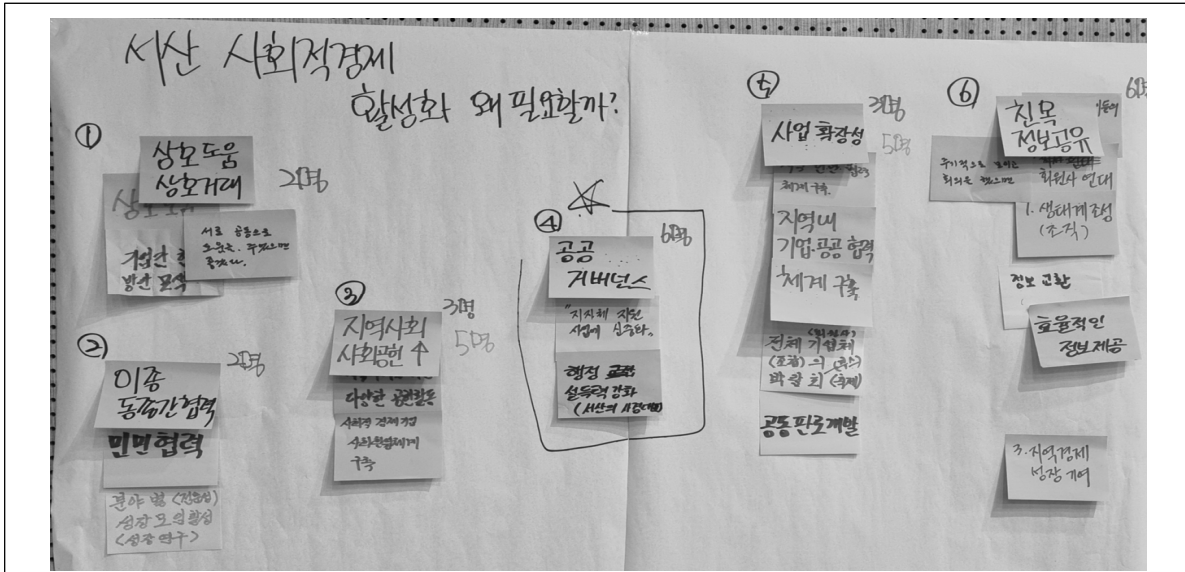 서산 사회적경제
활성화 왜 필요할까?
①
상호도움
상호거래
2명
서로 공동으로
도움을 주었으면
좋겠다.
기업간
방안 모색
②
이종
동종간협력
2명
민민협력
분야별
성장모임활성
<성장연구>
③
지역사회
사회공헌 ↑
3명
5명
다양한 공헌활동
구축
④
공공
거버넌스
6명
"지자체 지원
사업에 집중화"
행정
설득력 강화
⑤
사업 확장성
5명
체계 구축.
지역내
기업.공공 협력
체계 구축
전체 기업체
(조합)의
박람회 (축제)
공동판로개발
⑥
친목
정보공유
6명
주기적으로 모이는
회의를 했으면
회원사 연대
1. 생태계 조성
(조직)
정보 교환
효율적인
정보제공
3. 지역경제
성장 기여